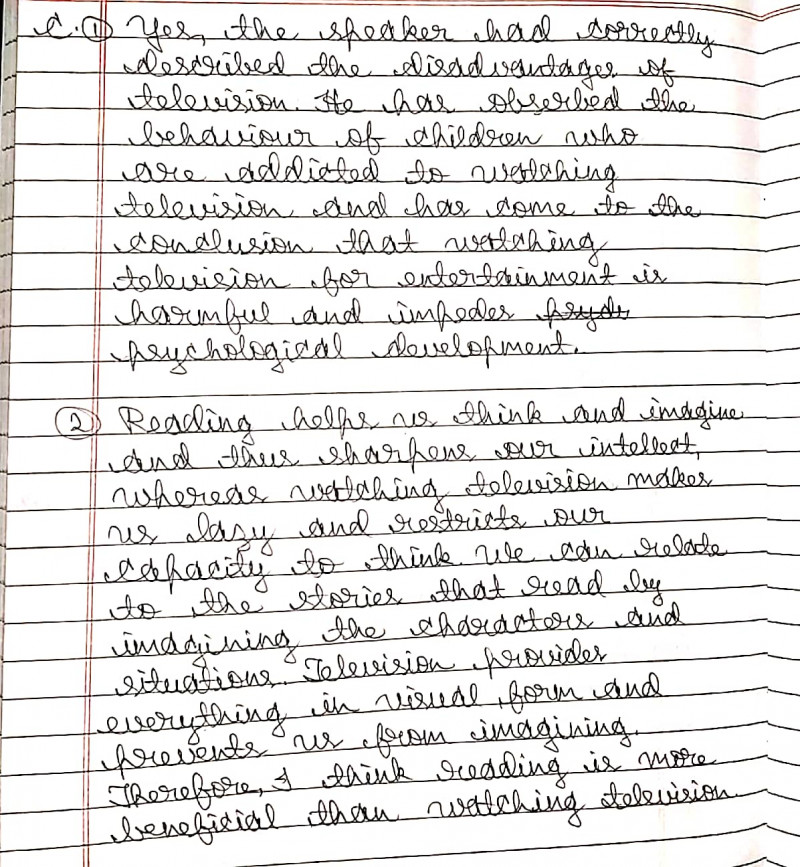 C. ① Yes, the speaker had correctly
described the disadvantages of
television. He has observed the
behaviour of children who
are addicted to watching
television and has come to the
conclusion that watching
television for entertainment is
harmful and impedes psych
psychological development.
② Reading helps us think and imagine
and thus sharpens our intellect,
whereas watching television makes
us lazy and restricts our
capacity to think. We can relate
to the stories that read by
imagining the characters and
situations. Television provides
everything in visual form and
prevents us from imagining.
Therefore, I think reading is more
beneficial than watching television.